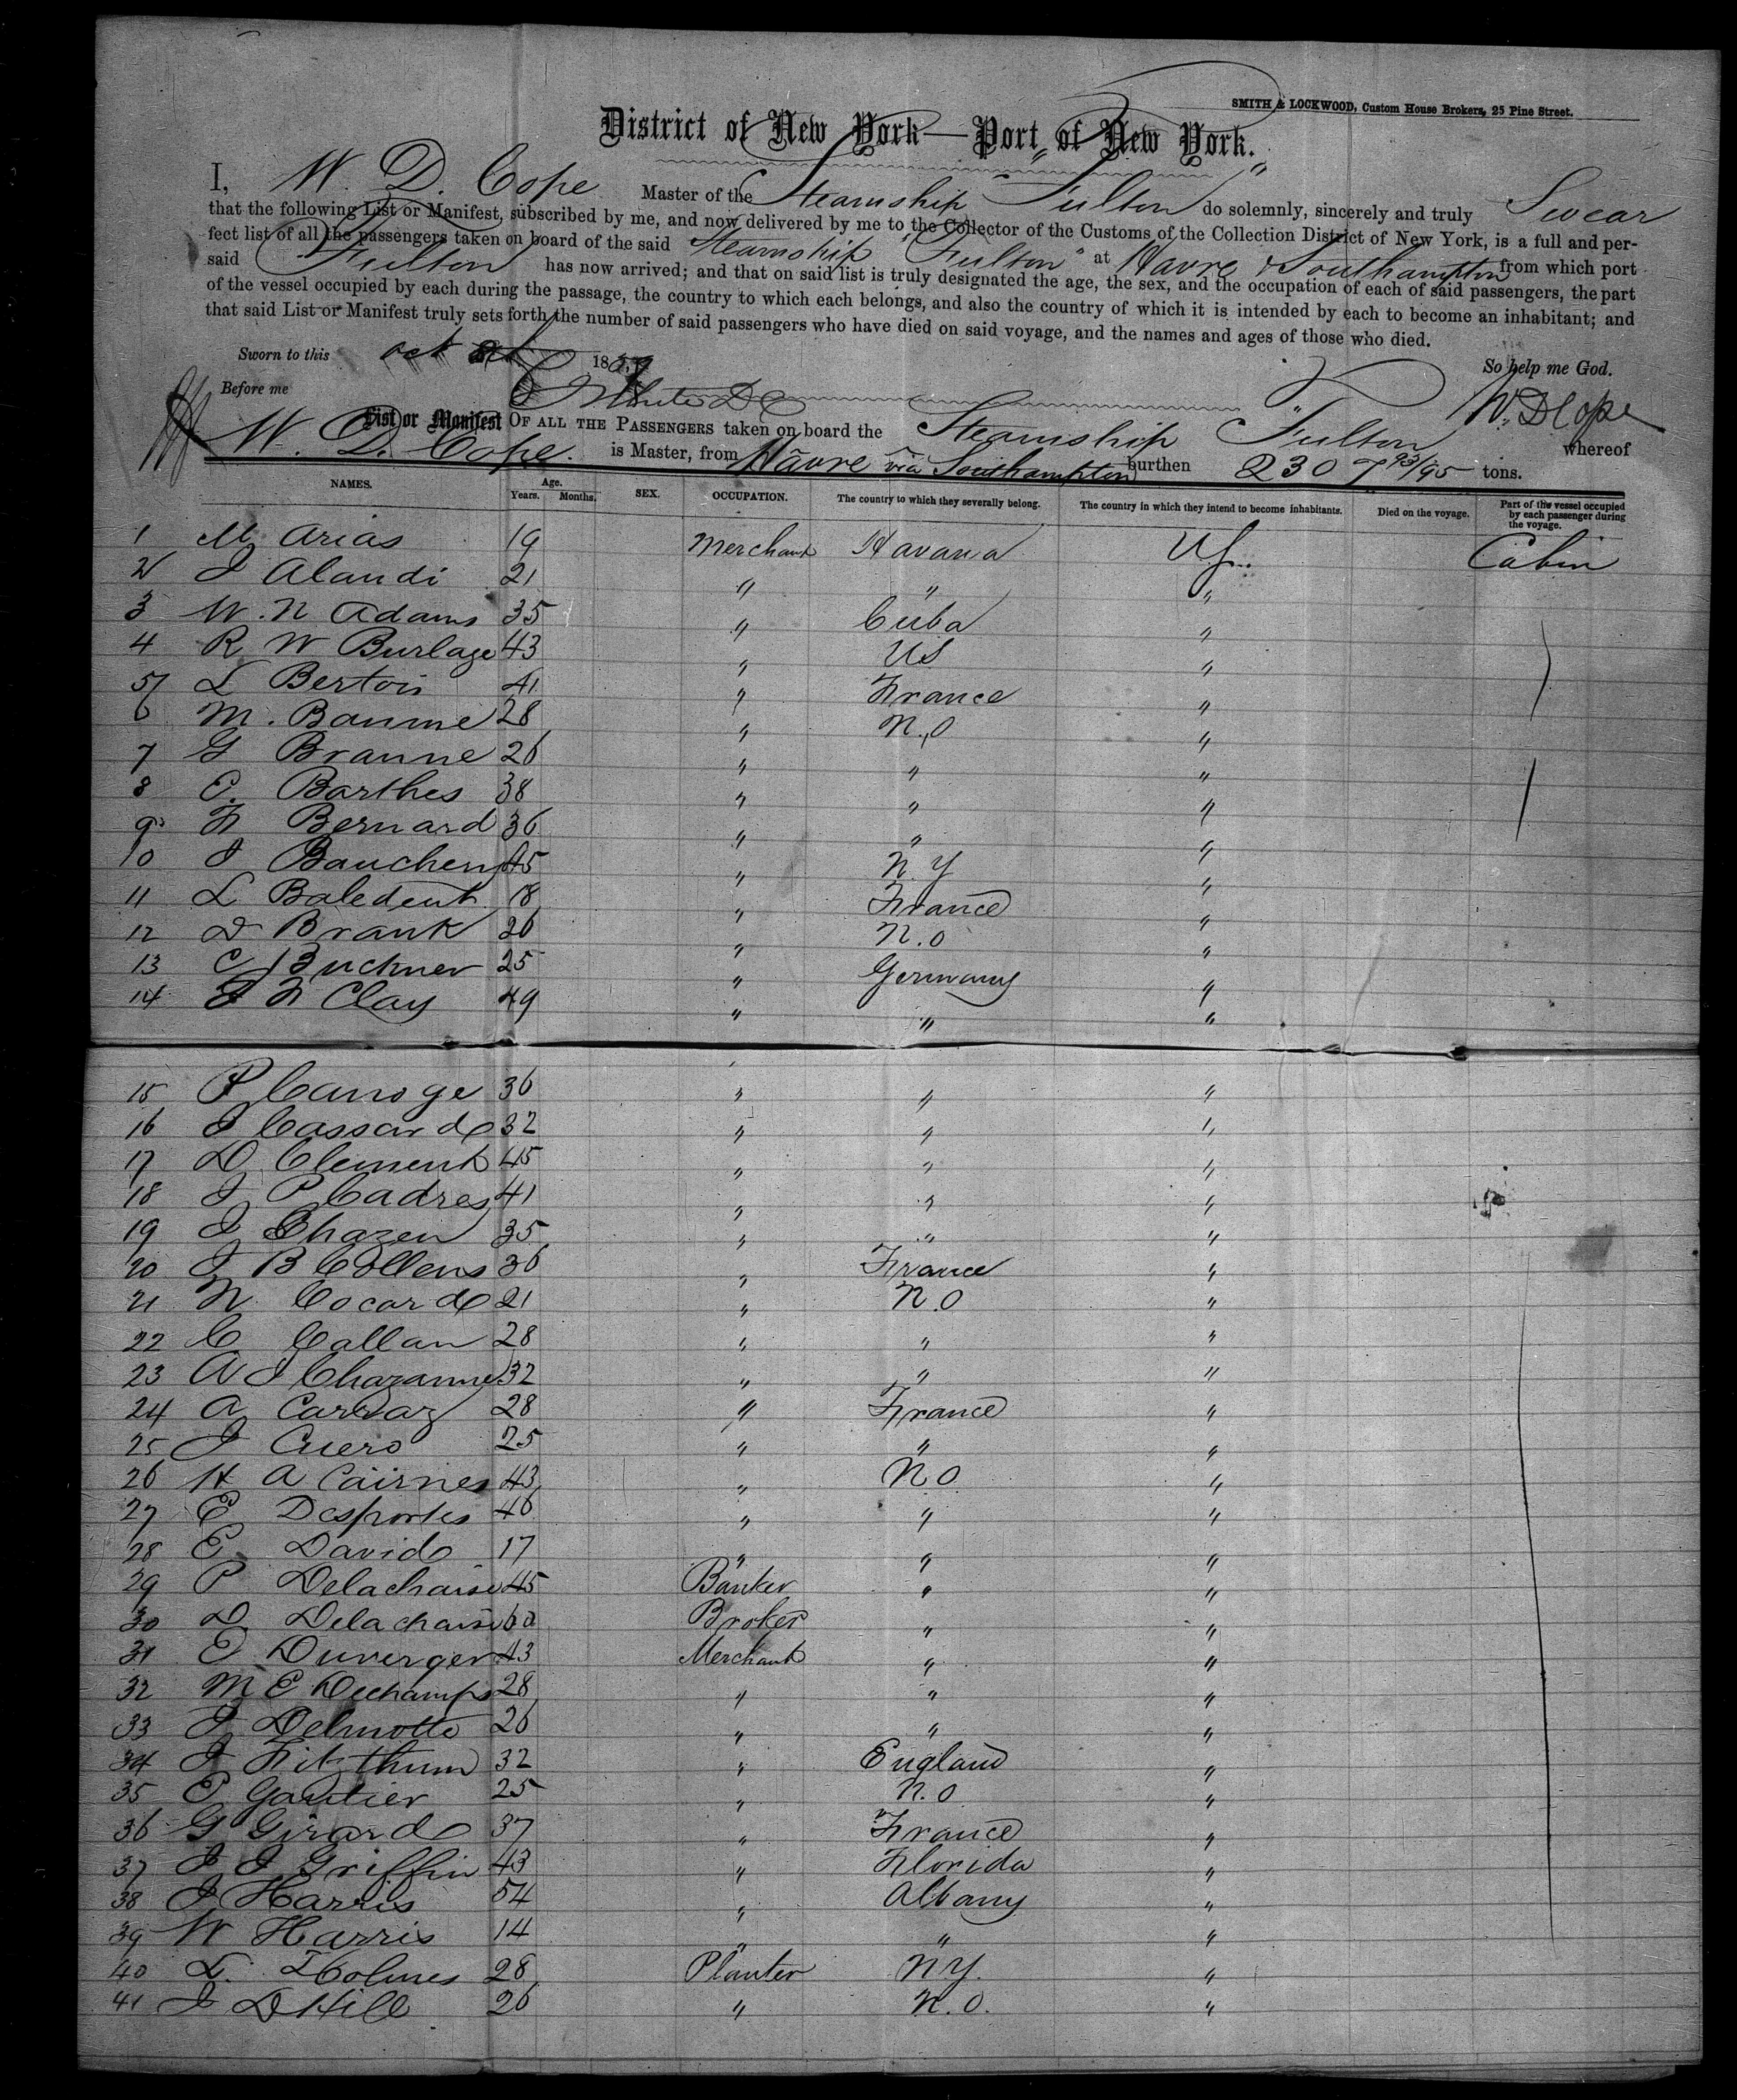 SMITH & LOCKWOOD, Custom House Brokers, 25 Pine Street.
District of New York—Port of New York.
I, W. D. Cope Master of the Steamship "Fulton" do solemnly, sincerely and truly Swear
that the following List or Manifest, subscribed by me, and now delivered by me to the Collector of the Customs of the Collection District of New York, is a full and per-
fect list of all the passengers taken on board of the said Steamship "Fulton" at Havre & Southampton from which port
said Fulton has now arrived; and that on said list is truly designated the age, the sex, and the occupation of each of said passengers, the part
of the vessel occupied by each during the passage, the country to which each belongs, and also the country of which it is intended by each to become an inhabitant; and
that said List or Manifest truly sets forth the number of said passengers who have died on said voyage, and the names and ages of those who died.
Sworn to this Oct 1859 So help me God.
Before me W. D Cope
List or Manifest OF ALL THE PASSENGERS taken on board the Steamship "Fulton whereof
W. D. Cope. is Master, from Havre via Southampton burthen 2307 93/95 tons.
NAMES. Age. Years. Months. SEX. OCCUPATION. The country to which they severally belong. The country in which they intend to become inhabitants. Died on the voyage. Part of the vessel occupied by each passenger during the voyage.
1 M Arias 19 Merchant Havana US. Cabin
2 J Alandi 21 " " "
3 W. N Adams 35 " Cuba "
4 R W Burlage 43 " US "
5 L Bertois 41 " France "
6 M. Baume 28 " N.O "
7 G Branne 26 " " "
8 E. Barthes 38 " " "
9 F Bernard 36 " " "
10 J Baucheny 45 " N.Y "
11 L Baledent 18 " France "
12 D Brank 26 " N.O "
13 C Buckner 25 " Germany "
14 J F Clay 49 " " "
15 P Canoge 36 " " "
16 J Cassard 32 " " "
17 D Clement 45 " " "
18 J P Cadres 41 " " "
19 J Chazen 35 " " "
20 J B Collens 36 " France "
21 N. Cocard 21 " N.O "
22 C Callan 28 " " "
23 A J Chazanne 32 " " "
24 A 28 " France "
25 J Cuero 25 " " "
26 H A Cairnes 43 " N.O. "
27 E Desportes 46 " " "
28 E David 17 " " "
29 P Delachaise 45 Banker " "
30 D Delachaise 60 Broker " "
31 E Duverger 43 Merchant " "
32 M E Dechamps 28 " " "
33 J Delmotte 26 " " "
34 J Fitzthum 32 " England "
35 E Gautier 25 " N.O "
36 G Girard 37 " France "
37 J J Griffin 43 " Florida "
38 J Harris 54 " Albany "
39 W Harris 14 " " "
40 L. Holmes 28 Planter N.Y. "
41 J D Hill 26 " N.O. "